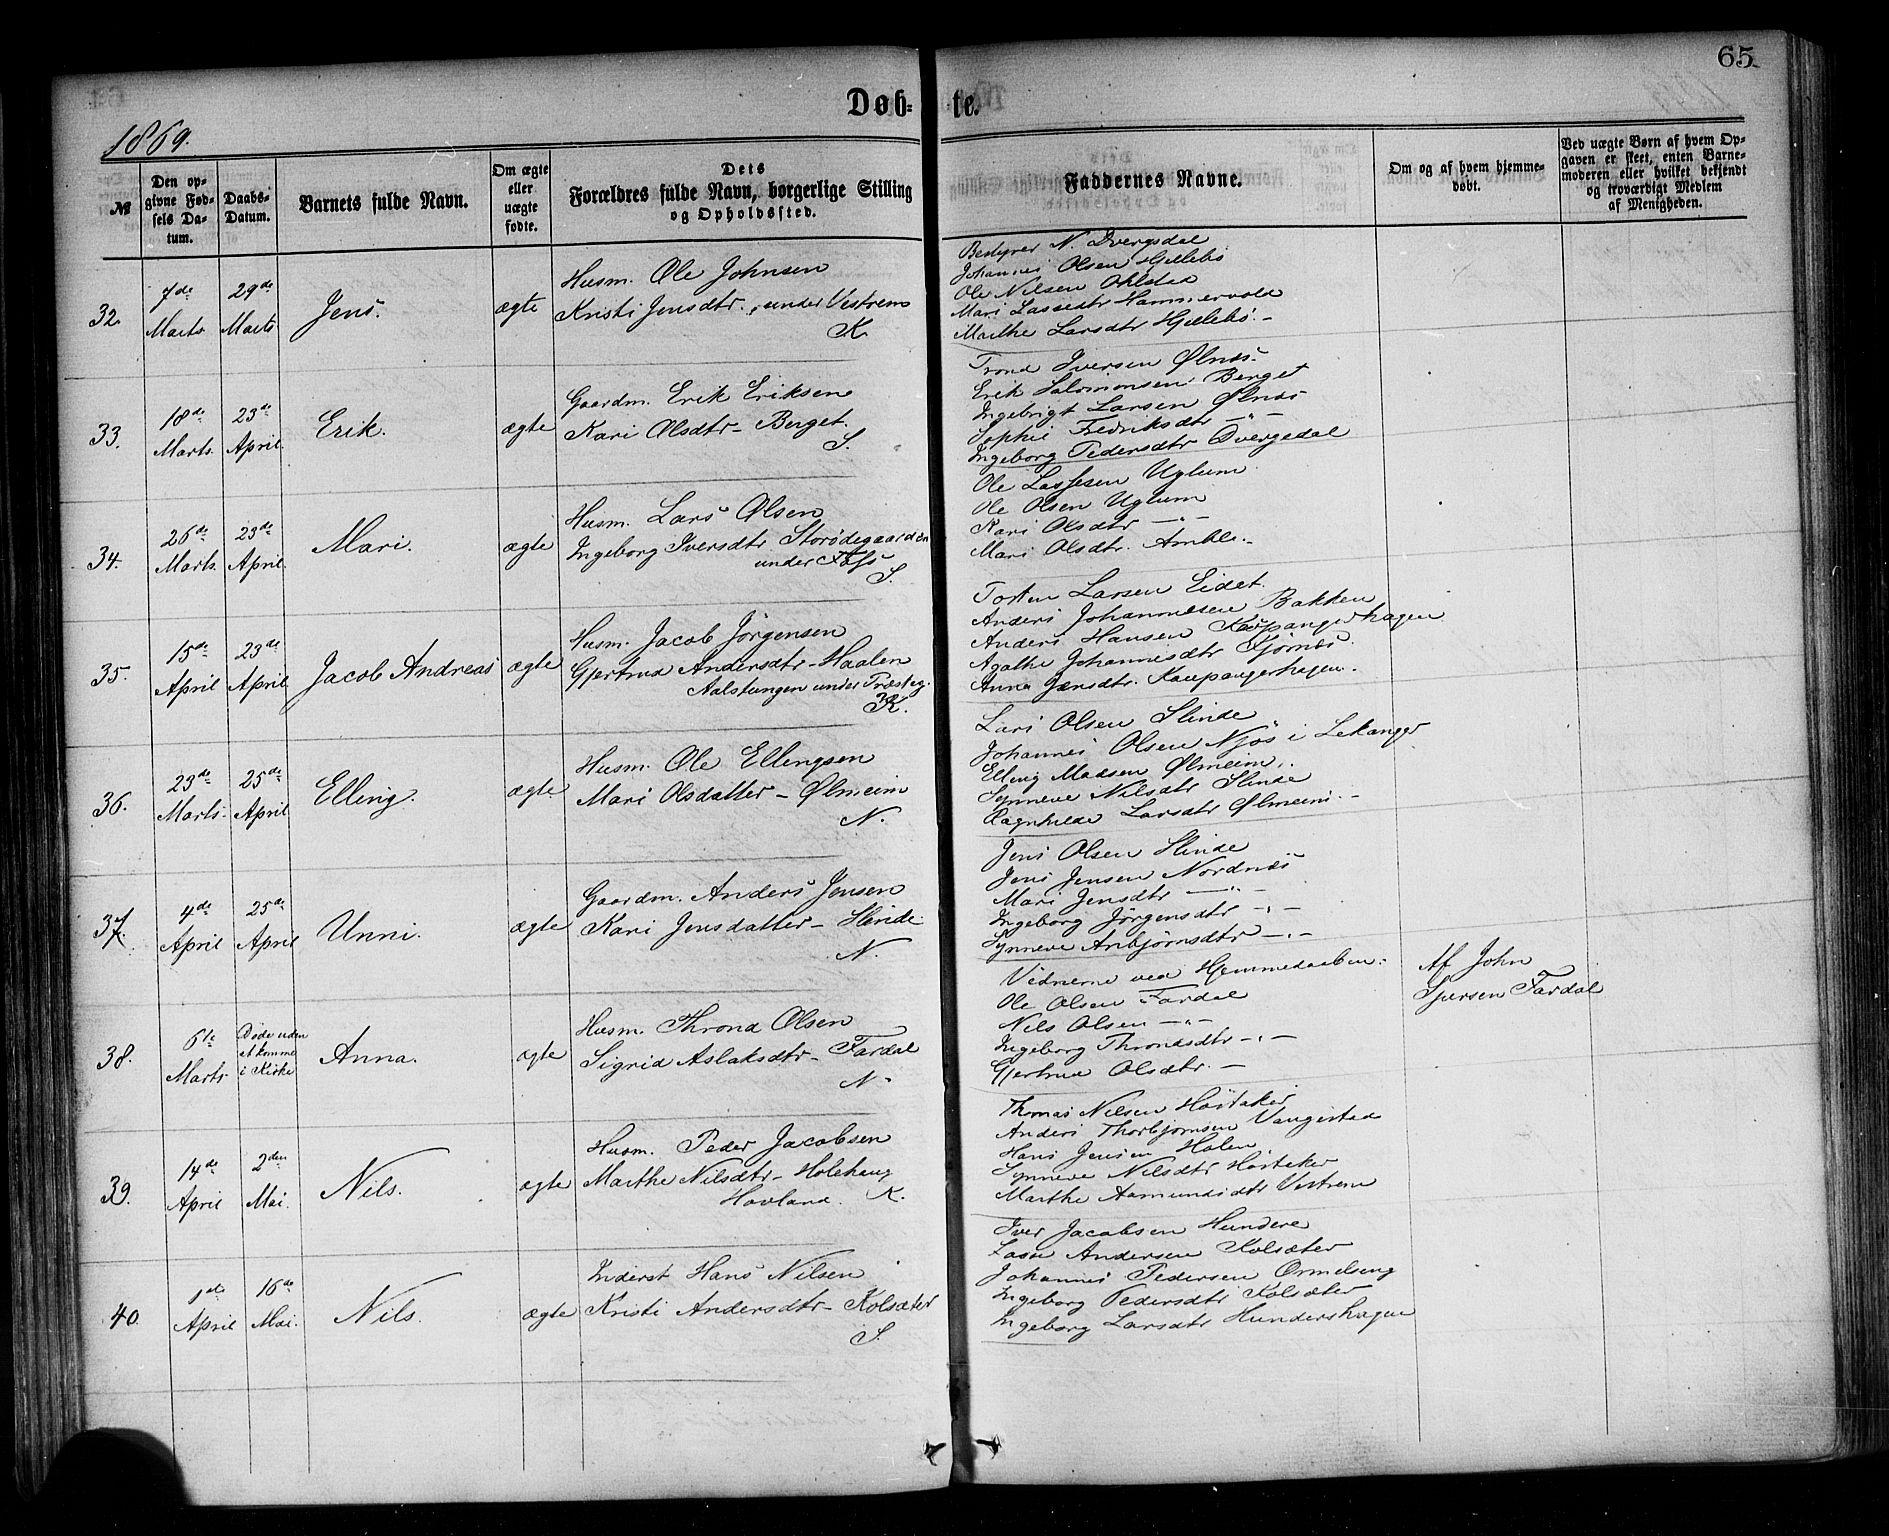 65.
Døb- te.
1869.
№
Den opgivne Fødsels Datum.
Daabs-Datum.
Barnets fulde Navn.
Om ægte eller uægte fødte.
Dets Forældres fulde Navn, borgerlige Stilling og Opholdssted.
Faddernes Navne.
Om og af hvem hjemmedøbt.
Ved uægte Børn af hvem Opgaven er skeet, enten Barnemoderen eller hvilket bekjendt og troværdigt Medlem af Menigheden.
32. 7de Marts 29de Marts Jens. ægte
Husm. Ole Johnsen
Kristi Jensdtr., under Vestrem
K.
Bestyrer N. Dvergsdal
Johannes Olsen Hjellebö
Ole Nilsen Ohlstad
Mari Lassedtr Hammervold
Marthe Larsdtr Hjellebö.-
33. 18de Marts 23de April Erik. ægte
Gaardm. Erik Eriksen
Kari Olsdtr - Berget.
S.
Trond Iversen Ølnæs
Erik Salomonsen Berget
Ingebrigt Larsen Ølnæs
Sophie Fredriksdtr -"-
Ingeborg Pedersdtr Dvergedal
34. 26de Marts 23de April Mari. ægte
Husm. Lars Olsen
Ingeborg Iversdtr Storødegaarden
under Foss
S.
Ole Lassesen Uglum
Ole Olsen Uglum
Kari Olsdtr -"-
Mari Olsdtr. Amble.-
35. 15de April 23de April Jacob Andreas ægte
Husm. Jacob Jörgensen
Gjertrud Andersdtr - Haalen
Aalstungen under
K.
Torsten Larsen Eidet.
Anders Johannesen Bakken
Anders Hansen Kaupangerhagen
Agathe Johannesdtr Fjørnæs.
Anna Jensdtr. Kaupangerhagen.
36. 23de Marts 25de April Elling. ægte
Husm. Ole Ellingsen
Mari Olsdatter - Ølmeim
N.
Lars Olsen Slinde
Johannes Olsen Njøs i Lekanger
Elling Madsen Ølmeim.
Synneve Nilsdtr Slinde
Ragnhilde Larsdtr Ølmeim.-
37. 4de April 25de April Unni. ægte
Gaardm. Anders Jensen
Kari Jensdatter - Slinde
N.
Jens Olsen Slinde
Jens Jensen Nordnæs
Mari Jensdtr -"-
Ingeborg Jörgensdtr -"-
Synneve Anbjørnsdtr -"-
38. 6te Marts Døde uden at komme i Kirke Anna. ægte
Husm. Thrond Olsen
Sigrid Aslaksdtr - Fardal
N.
Vidnerne ved Hjemmedaaben:
Ole Olsen Fardal
Nils Olsen -"-
Ingeborg Throndsdtr -"-
Gjertrud Olsdtr. -
Af John
Sjursen Fardal
39. 14de April 2den Mai. Nils. ægte
Husm. Peder Jacobsen
Marthe Nilsdtr - Holehaug
Hovland. K.
Thomas Nilsen Høstaker
Anders Thorbjørnsen Vangestad
Hans Jensen Holen
Synneve Nilsdtr Høstaker
Marthe Aamundsdtr Vestrem
40. 1de April 16de Mai. Nils. ægte
Inderst Hans Nilsen
Kristi Andersdtr - Kolsæter
S.
Iver Jacobsen Hundere
Lasse Andersen Kolsæter
Johannes Pedersen Ormelseng
Ingeborg Pedersdtr Kolsæter
Ingeborg Larsdtr Hundershagen